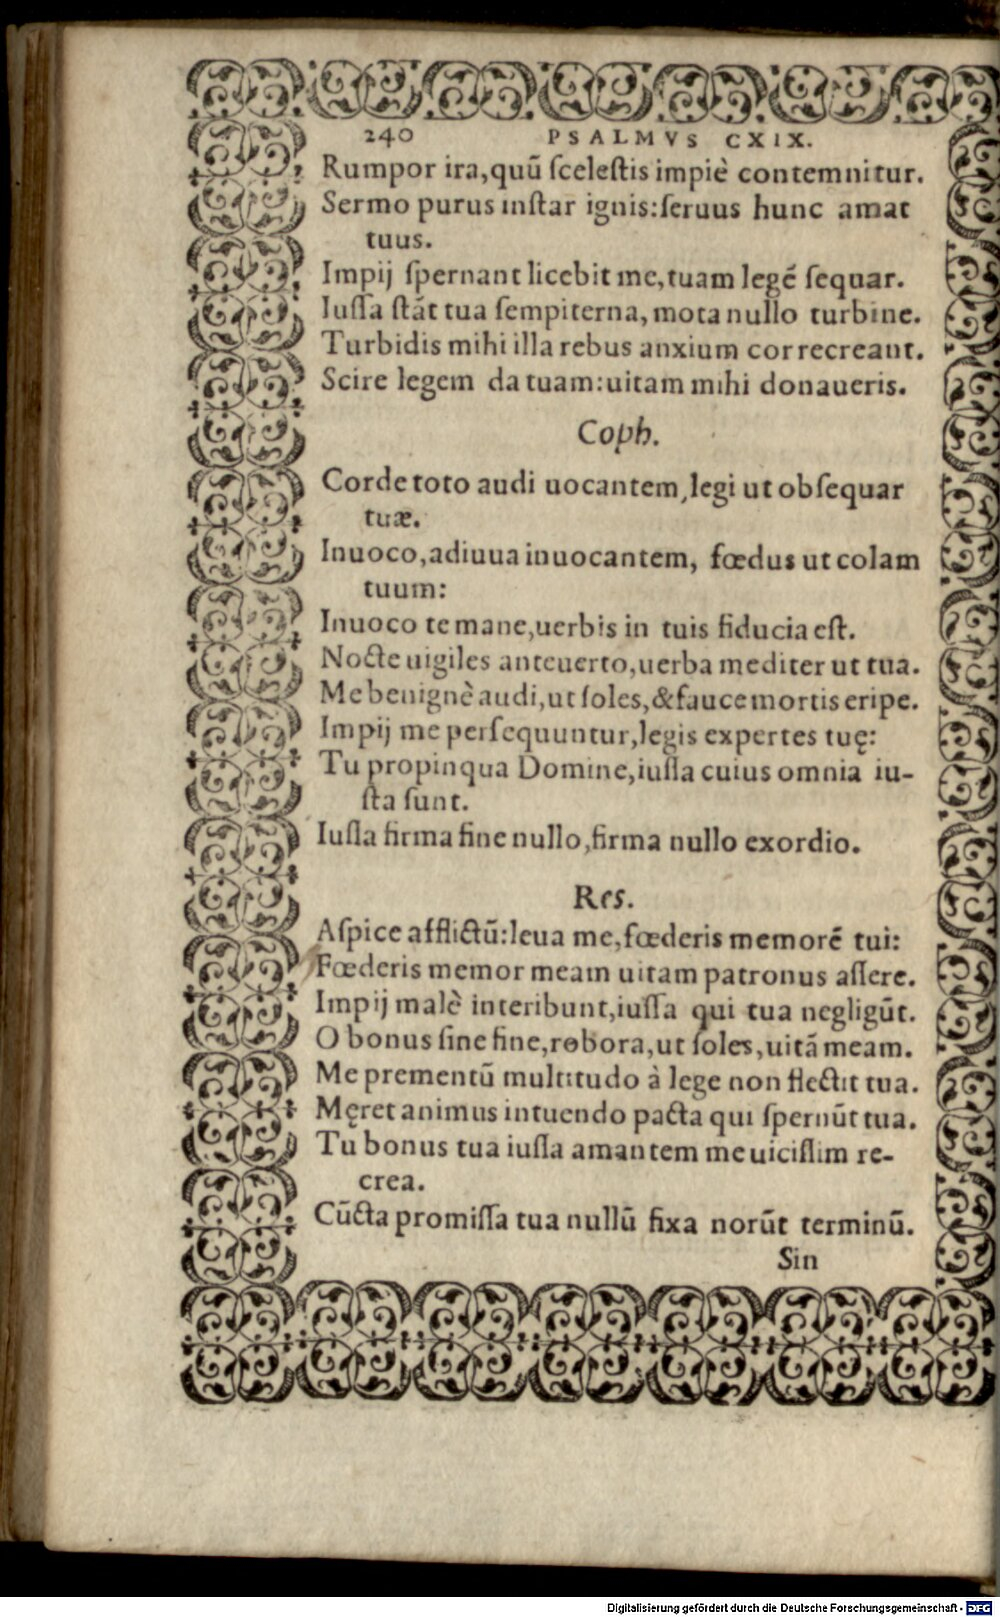 240 PSALMVS CXIX.
Rumpor ira,quū ſceleſtis impiè contemnitur.
Sermo purus inſtar ignis:ſeruus hunc amat
tuus.
Impij ſpernant licebit me,tuam legē ſequar.
Iuſſa ſtāt tua ſempiterna, mota nullo turbine.
Turbidis mihi illa rebus anxium cor recreant.
Scire legem da tuam:uitam mihi donaueris.
Coph.
Corde toto audi uocantem,legi ut obſequar
tuæ.
Inuoco,adiuua inuocantem, fœdus ut colam
tuum:
Inuoco te mane,uerbis in tuis fiducia eſt.
Nocte uigiles anteuerto,uerba mediter ut tua.
Me benignè audi,ut ſoles,& fauce mortis eripe.
Impij me perſequuntur,legis expertes tuę:
Tu propinqua Domine,iuſſa cuius omnia iu-
ſta ſunt.
Iuſſa firma fine nullo,firma nullo exordio.
Res.
Aſpice afflictū:leua me,fœderis memorē tui:
Fœderis memor meam uitam patronus aſſere.
Impij malè interibunt,iuſſa qui tua negligūt.
O bonus ſine fine,robora,ut ſoles,uitā meam.
Me prementū multitudo à lege non flectit tua.
Męret animus intuendo pacta qui ſpernūt tua.
Tu bonus tua iuſſa amantem me uiciſſim re-
crea.
Cūcta promiſſa tua nullū fixa norūt terminū.
Sin
Digitalisierung gefördert durch die Deutsche Forschungsgemeinschaft - DFG